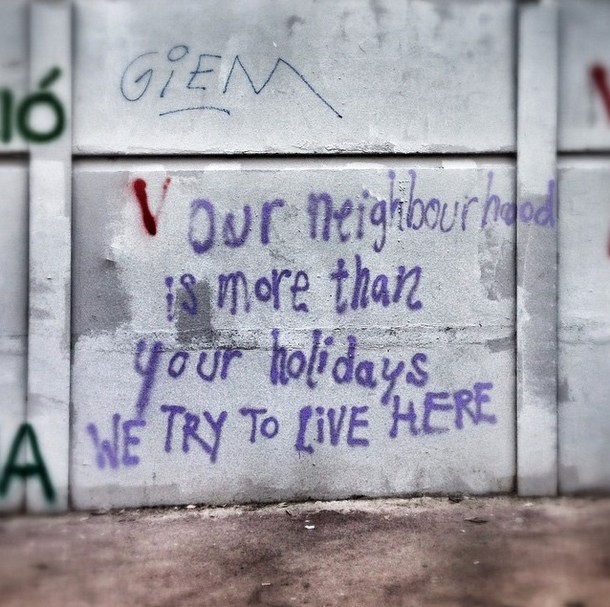 GiEM
IÓ
V OUR neighbourhood
is more than
your holidays
WE TRY TO LiVE HERE
A